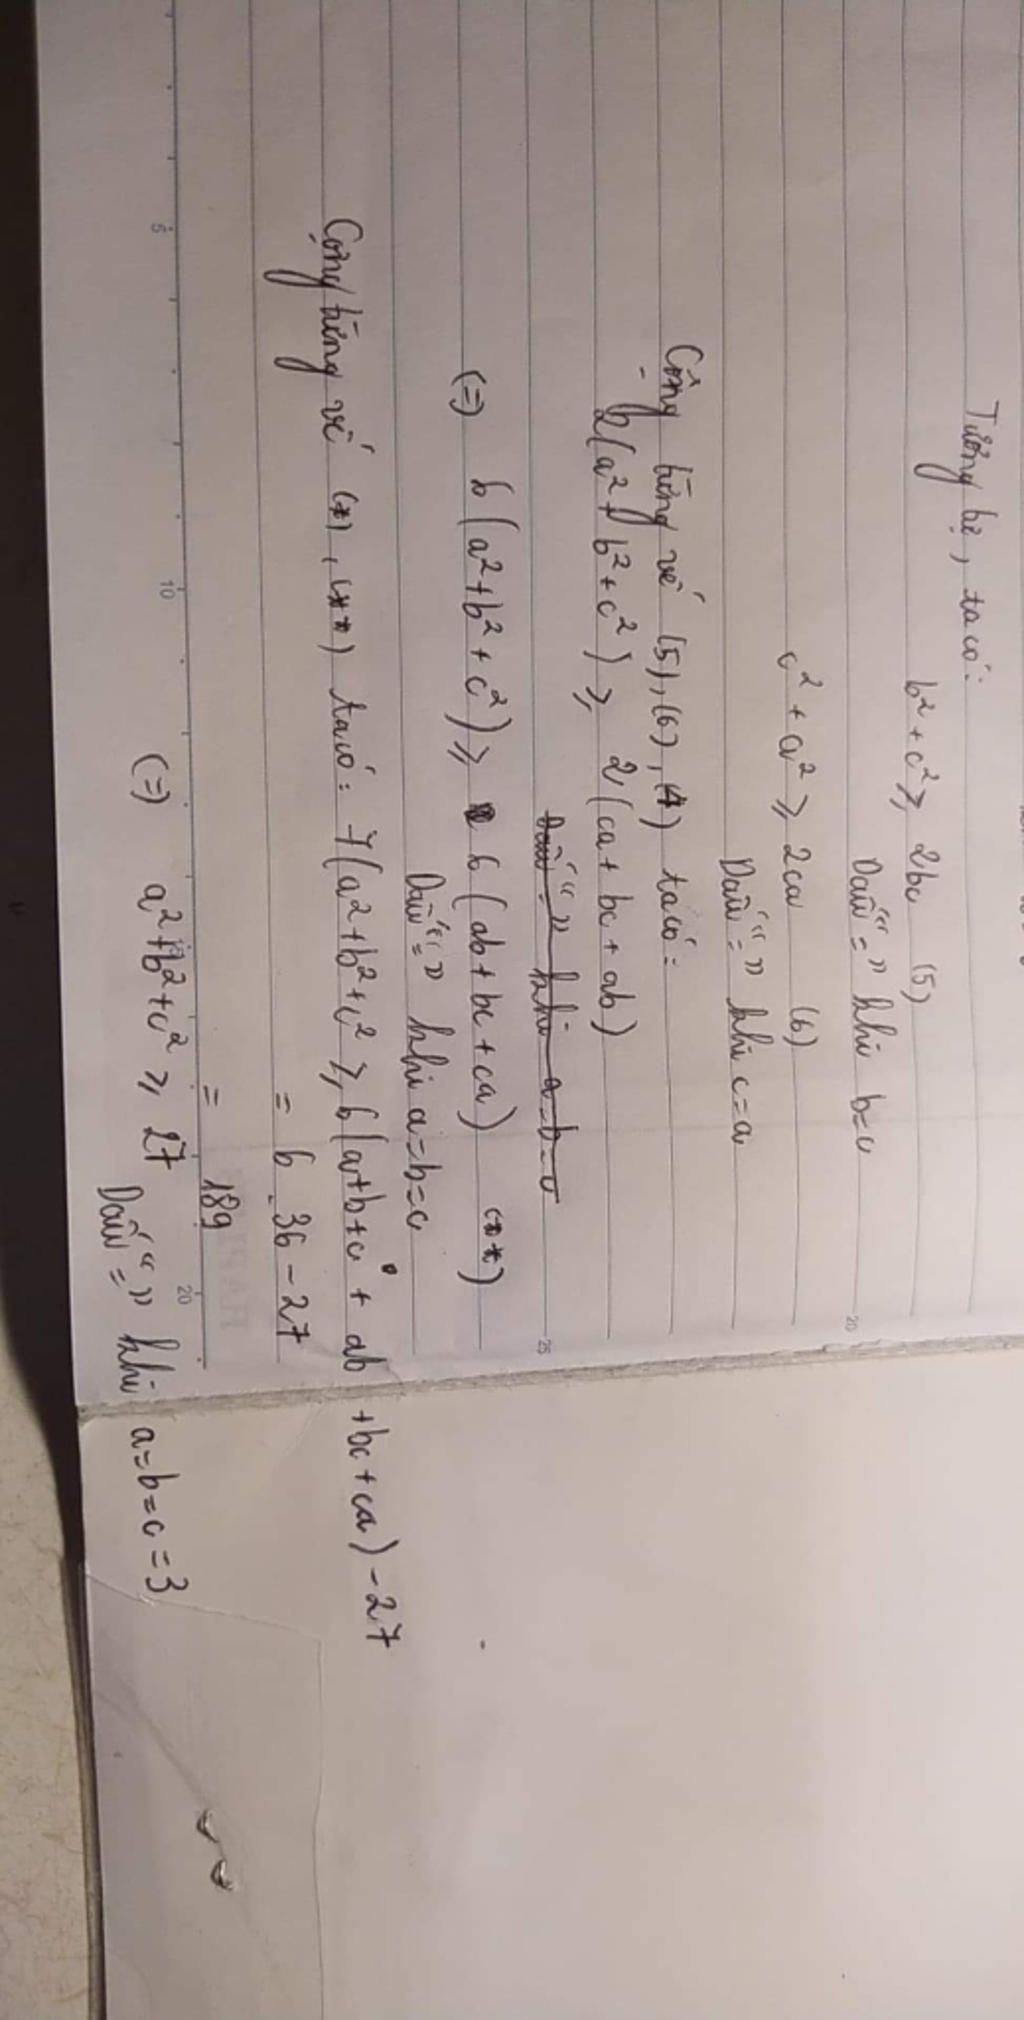 Tương tự, ta có:
b² + c² ≥ 2bc (5)
Dấu "=" khi b=c
c² + a² ≥ 2ca (6)
Dấu "=" khi c=a
Cộng từng vế (5), (6), (4) ta có:
2(a² + b² + c²) ≥ 2(ca + bc + ab)
Dấu "=" khi a=b=c
(=) 6(a² + b² + c²) ≥ 6(ab + bc + ca) (**)
Dấu "=" khi a=b=c
Cộng từng vế (*), (**) ta có: 7(a²+b²+c² ≥ 6(a+b+c + ab +bc+ca) - 27
= 6 . 36 - 27
= 189
(=) a²+b²+c² ≥ 27
Dấu "=" khi a=b=c=3
5
10
20
20
25